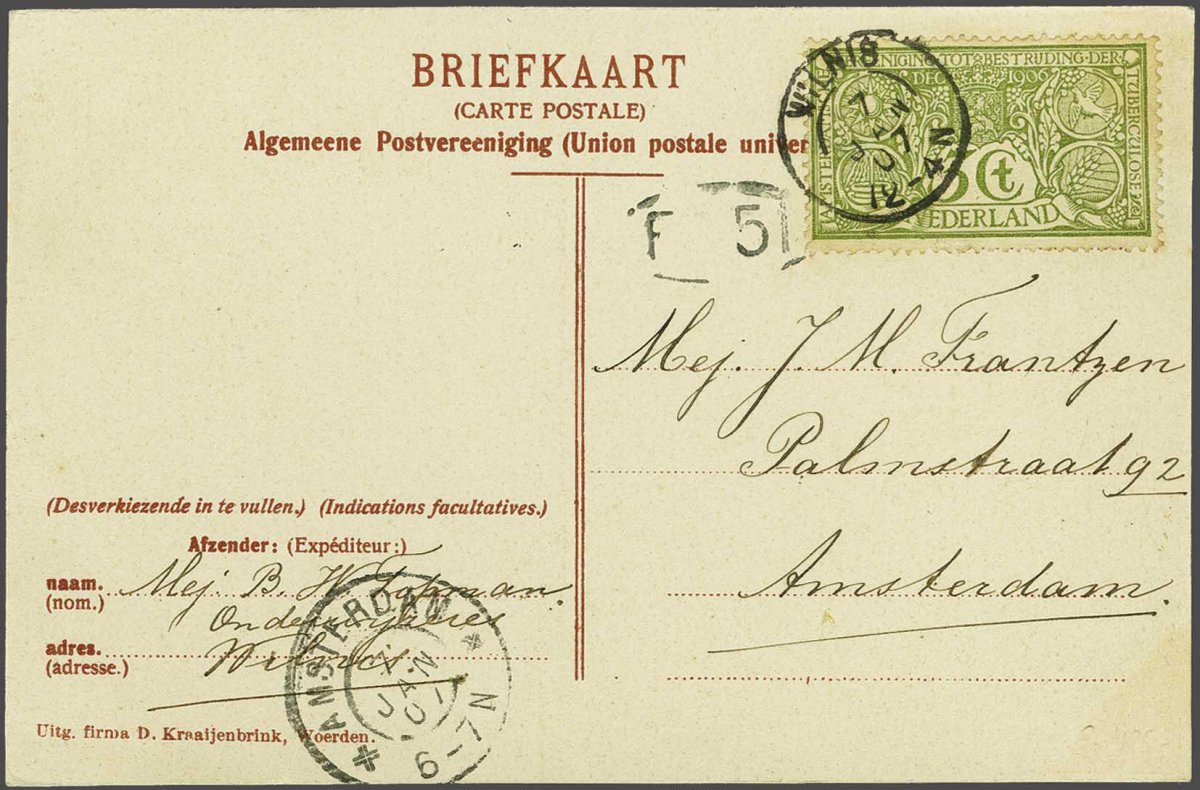 BRIEFKAART
(CARTE POSTALE)
Algemeene Postvereeniging (Union postale univer
AMSTER
NIGING TOT BESTRIJDING DER
TUBERCULOSE
DEC 1906
Ct
NEDERLAND
WILNIS
7
JAN
07
12-4N
F 51
Mej. J. M. Frantzen
Palmstraat 92
Amsterdam.
(Desverkiezende in te vullen.) (Indications facultatives.)
Afzender: (Expéditeur:)
naam. Mej. B. H. Topman.
(nom.)
Onderwijzeres
adres. Wilnis.
(adresse.)
AMSTERDAM
7
JAN
07
6-7N
Uitg. firma D. Kraaijenbrink, Woerden.